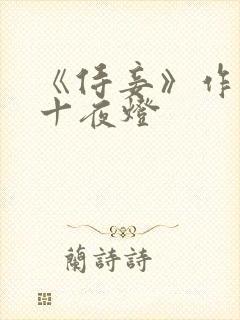 《侍妾》作
十夜燈
蘭詩詩